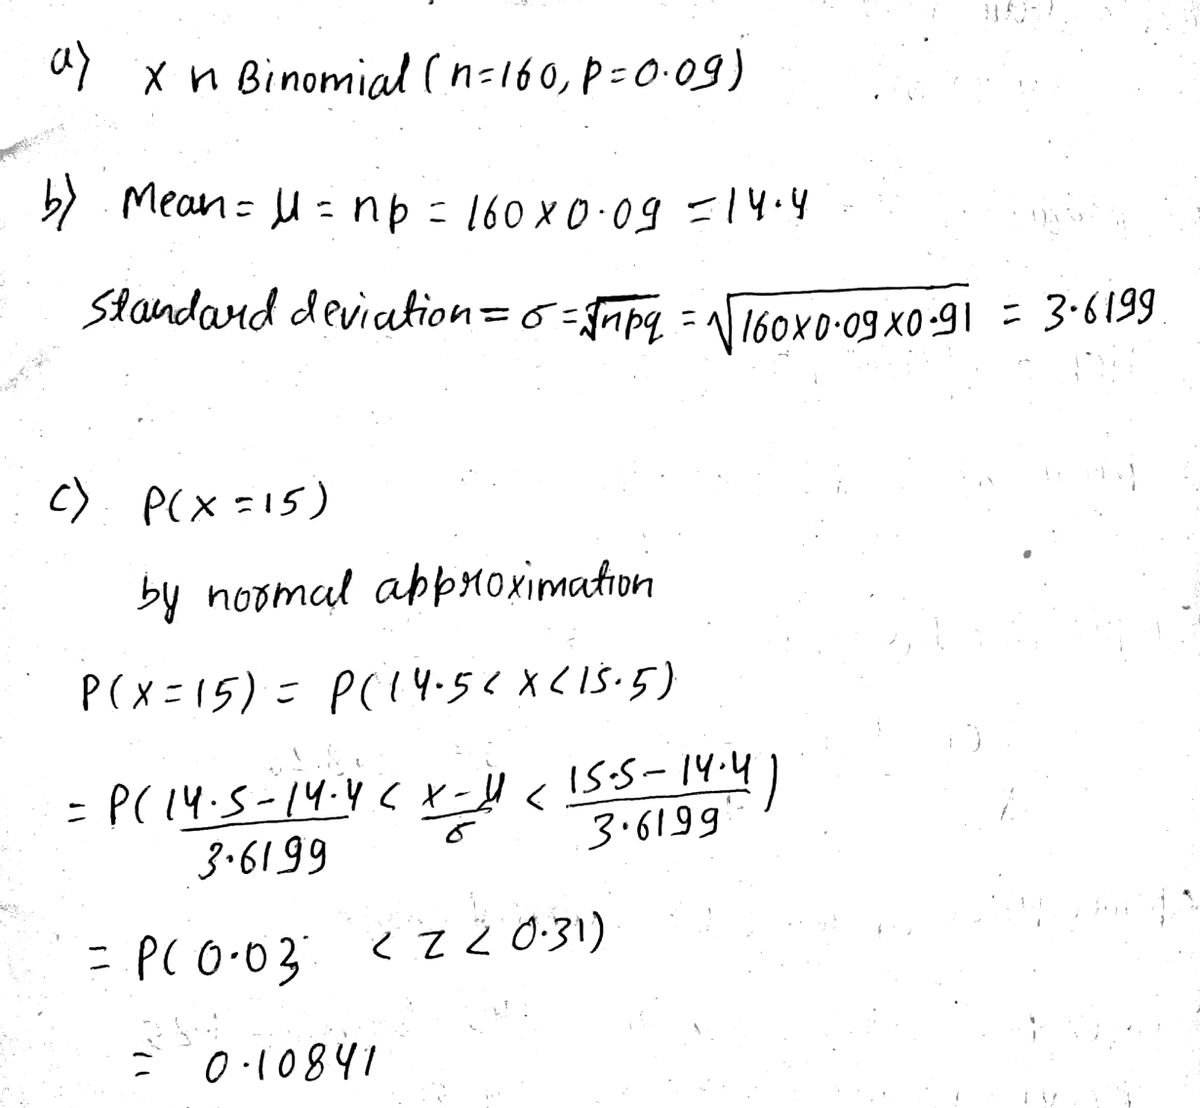 a) X n Binomial (n=160, p=0.09)
b) Mean = μ = np = 160 × 0.09 = 14.4
Standard deviation = σ = √npq = √160×0.09×0.91 = 3.6199
c) P(X=15)
by normal approximation
P(X=15) = P(14.5 < X < 15.5)
= P( 14.5-14.4 / 3.6199 < X-μ / σ < 15.5-14.4 / 3.6199 )
= P( 0.03 < Z < 0.31)
= 0.10841